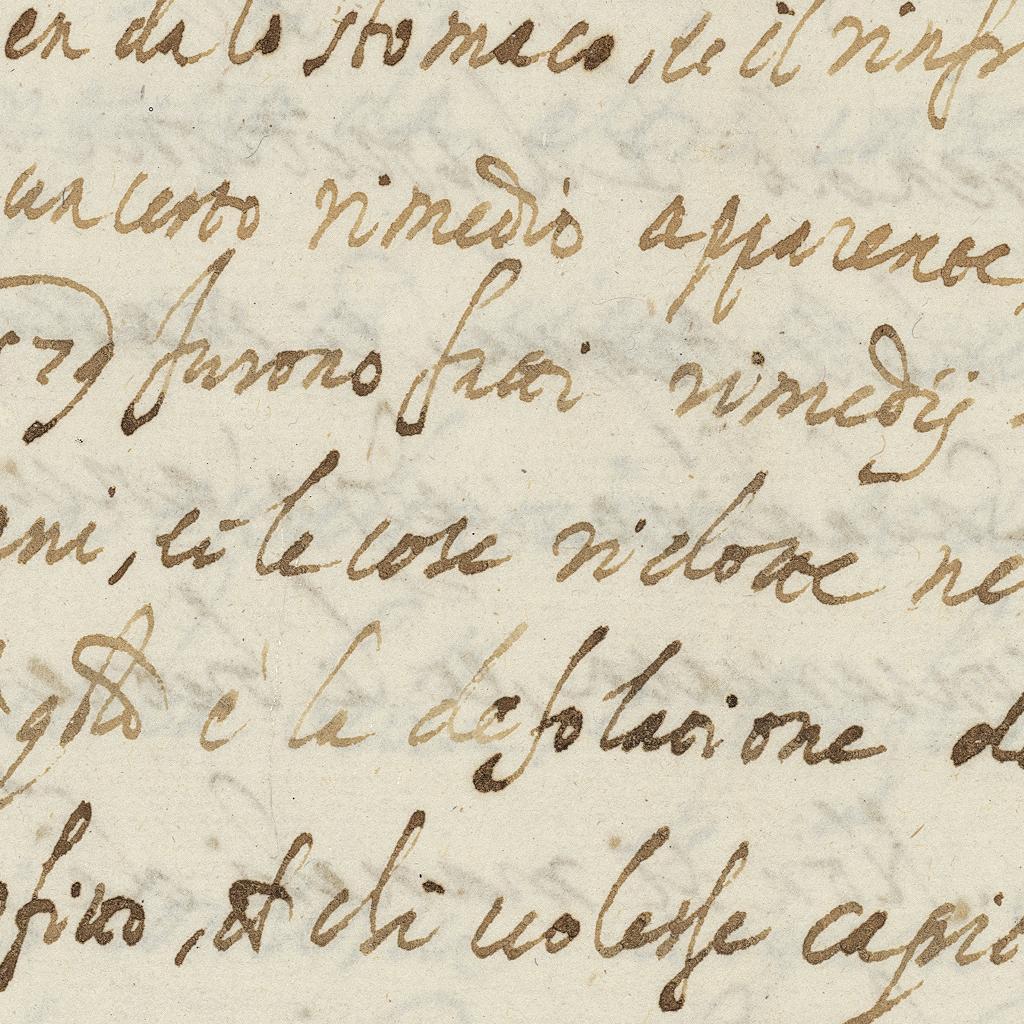 en da lo stomaco, se il rinfr
un certo rimedio apparente
579 furono fatti rimedij
nni, et le cose ridotte ne
q̃sto e la desolatione de
ofitto, et chi volesse capit